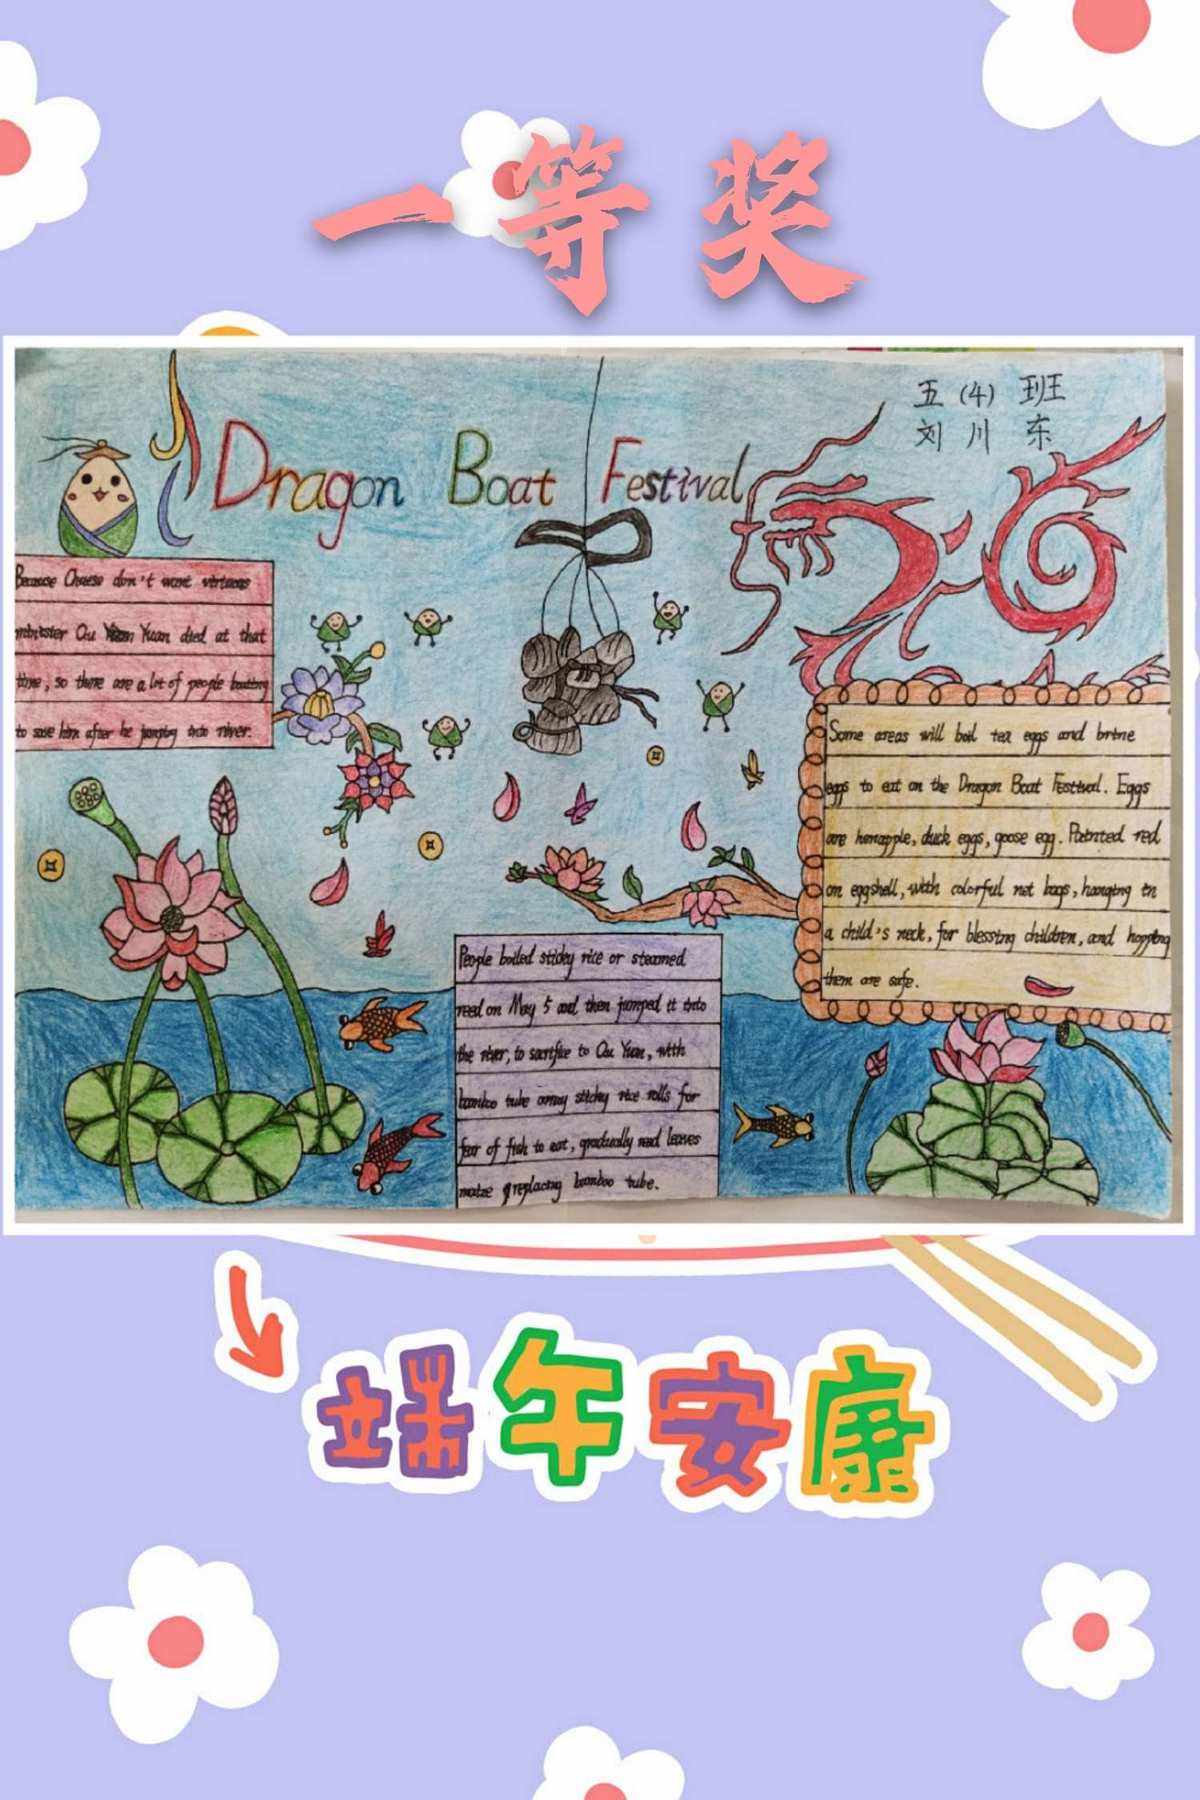 一等奖
五(4)班
刘川东
Dragon Boat Festival
Because Chaese don't want virtuous
minister Qu Yuan died at that
time, so there are a lot of people boating
to save him after he jumping into river.
Some areas will boil tea eggs and brine
eggs to eat on the Dragon Boat Festival. Eggs
are henapple, duck eggs, goose egg. Painted red
on eggshell, with colorful net bags, hanging in
a child's neck, for blessing children, and hopping
them are safe.
People boiled sticky rice or steamed
reed on May 5 and then jumped it into
the river, to sacrifice to Qu Yuan, with
bamboo tube array sticky rice rolls for
fear of fish to eat, gradually reed leaves
replacing bamboo tube.
端午安康